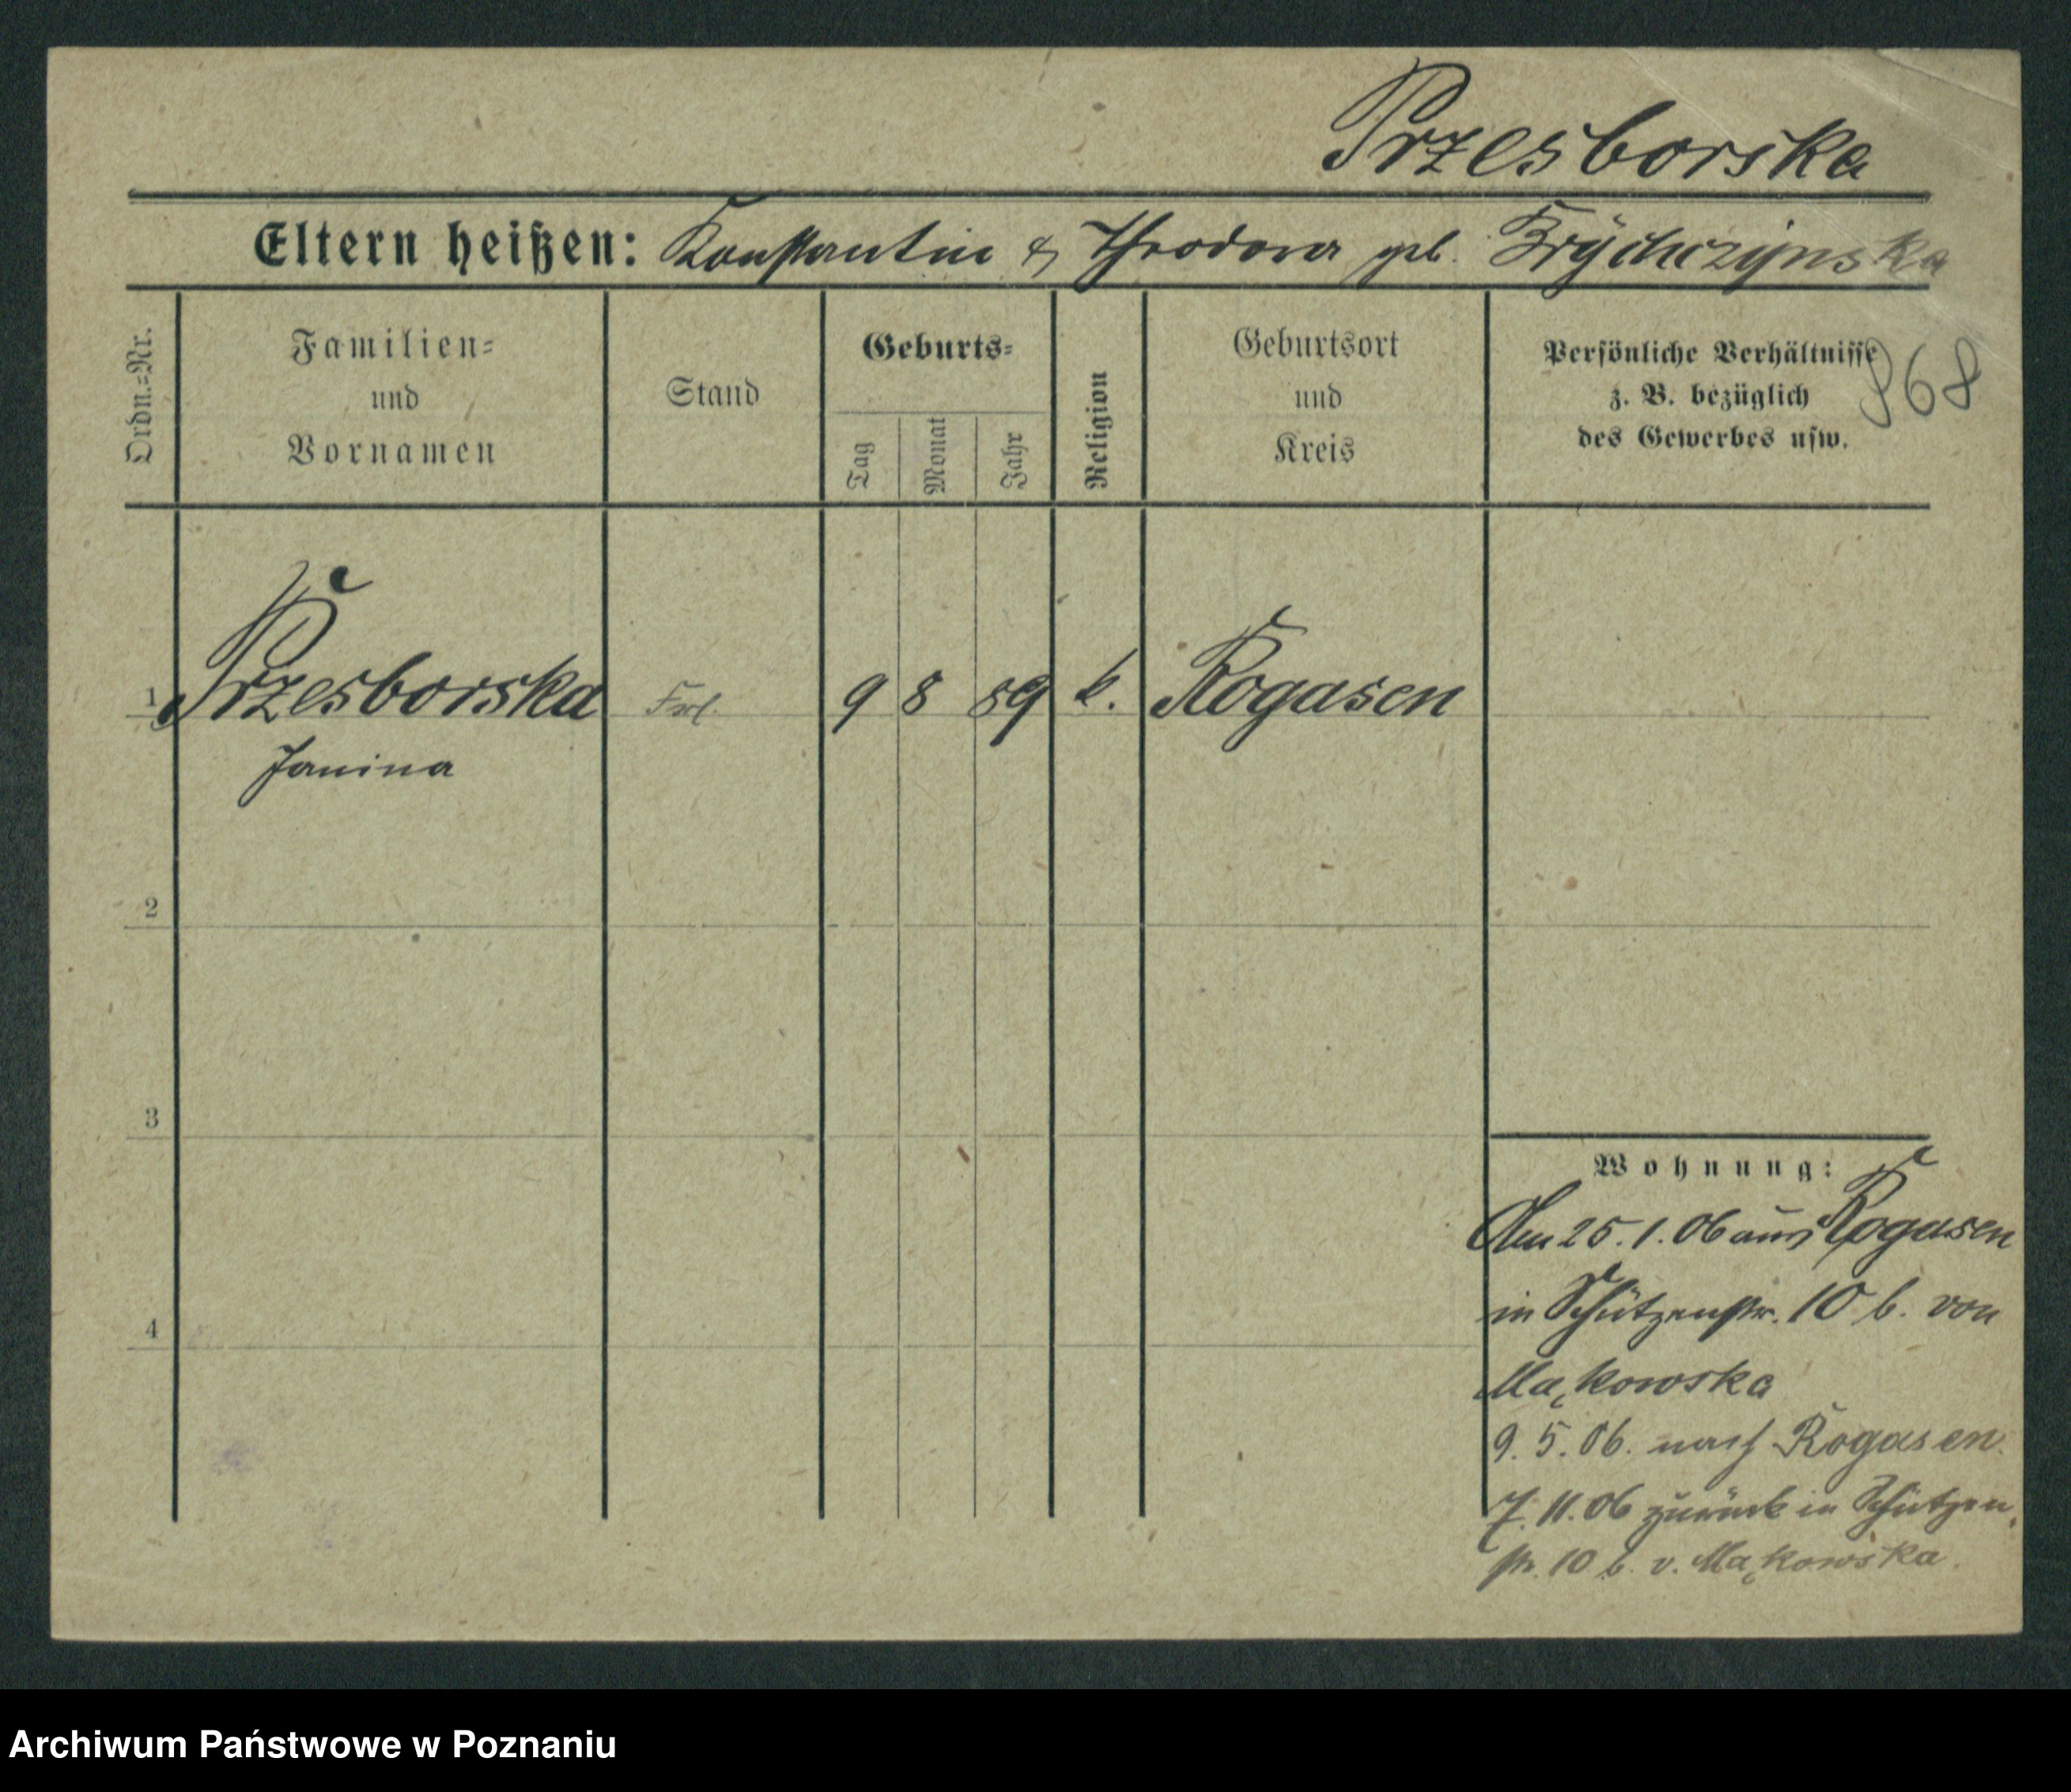 Przesborska
Eltern heißen: Konstantin & Theodora geb.
Ordn.=Nr.
Familien=
und
Vornamen
Stand
Geburts=
Tag
Monat
Jahr
Religion
Geburtsort
und
Kreis
Persönliche Verhältnisse
z. B. bezüglich
des Gewerbes usw.
968
1 Przesborska Frl. 9 8 89 k. Rogasen
Janina
2
3
4
Wohnung:
Am 25.1.06 aus Rogasen
in Schützenstr. 10 b. von
Mąkowska
9.5.06. nach Rogasen.
7.11.06 zurück in Schützen
str. 10 b. v. Mąkowska.
Archiwum Państwowe w Poznaniu